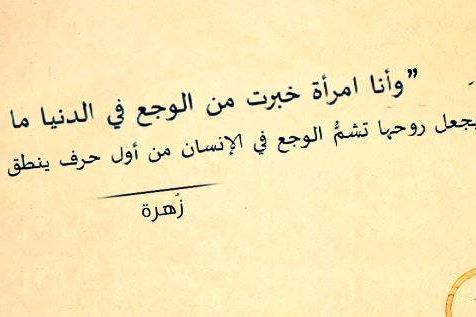 ”وأنا امرأة خبرت من الوجع في الدنيا ما
يجعل روحها تشمُّ الوجع في الإنسان من أول حرف ينطق
زُهرة